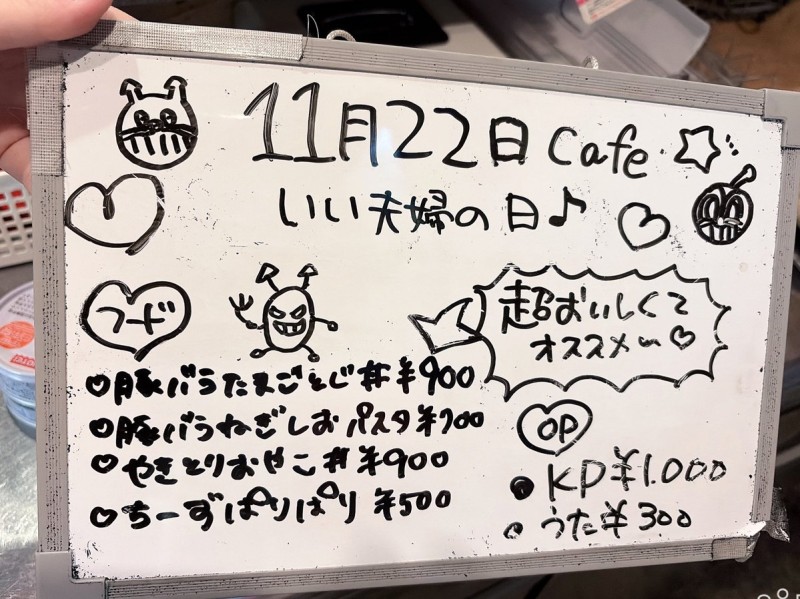 11月22日 Cafe
いい夫婦の日♪
フード
超おいしくて
オススメ〜♡
♡豚バラたまごとじ丼¥900
♡豚バラねぎしおパスタ¥700
♡やきとりおやこ丼¥900
♡ちーずぱりぱり ¥500
OP
●KP¥1.000
○うた¥300